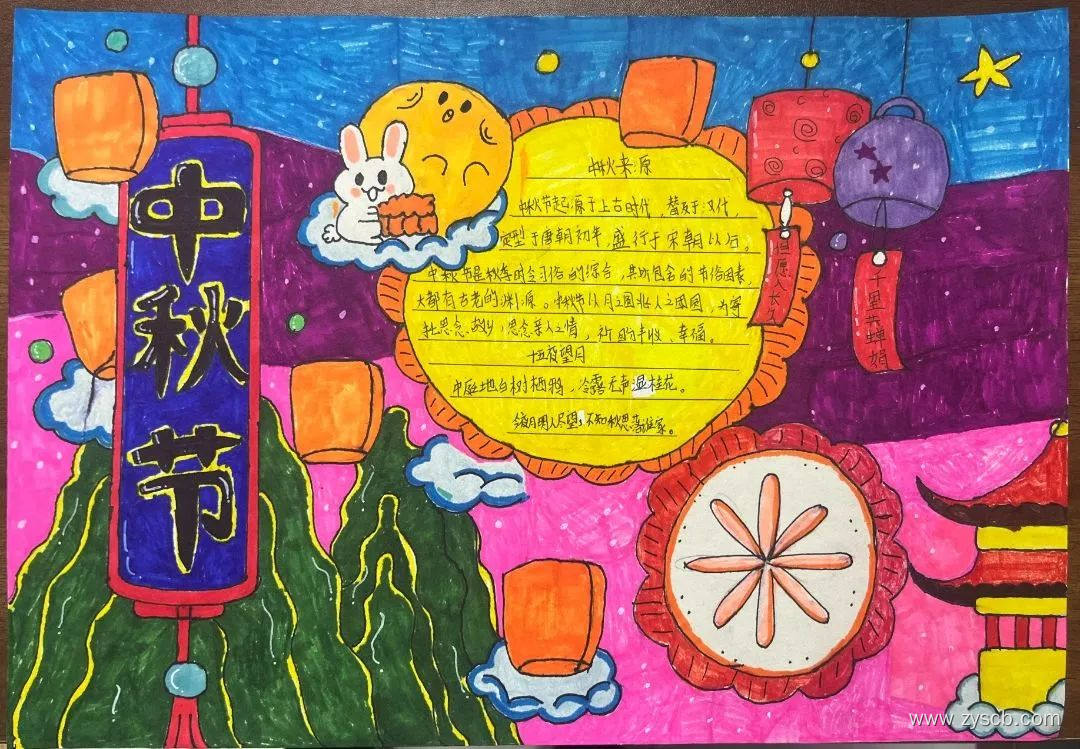 中秋节
中秋来源
中秋节起源于上古时代，普及于汉代，
定型于唐朝初年，盛行于宋朝以后，
中秋节是秋季时令习俗的综合，其所包含的节俗因素，
大都有古老的渊源。中秋节以月之圆兆人之团圆，为寄
托思念故乡，思念亲人之情，祈盼丰收、幸福。
十五夜望月
中庭地白树栖鸦，冷露无声湿桂花。
今夜月明人尽望，不知秋思落谁家。
但愿人长久
千里共婵娟
www.zyscb.com